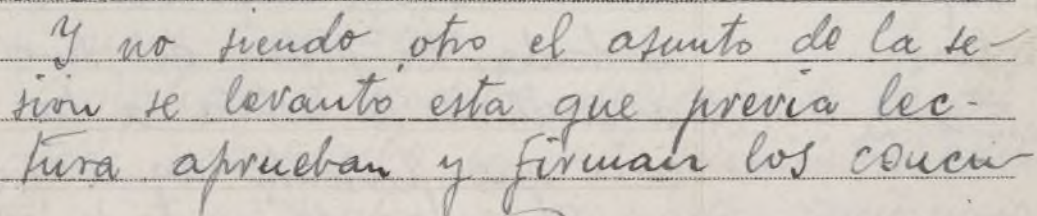 Y no siendo otro el asunto de la se-
sion se levantó esta que previa lec-
tura aprueban y firman los concu-